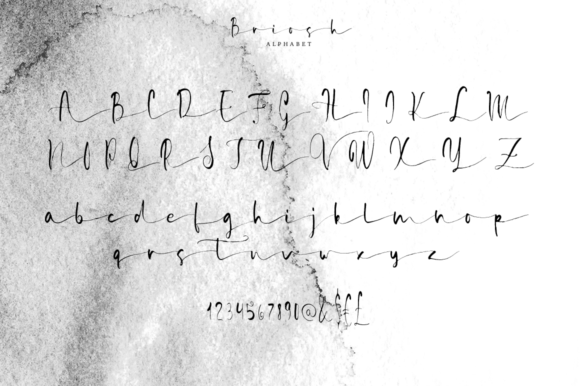 Briosh
ALPHABET
A B C D E F G H I J K L M
N O P Q R S T U V W X Y Z
a b c d e f g h i j k l m n o p
q r s t u v w x y z
1234567890@&$£